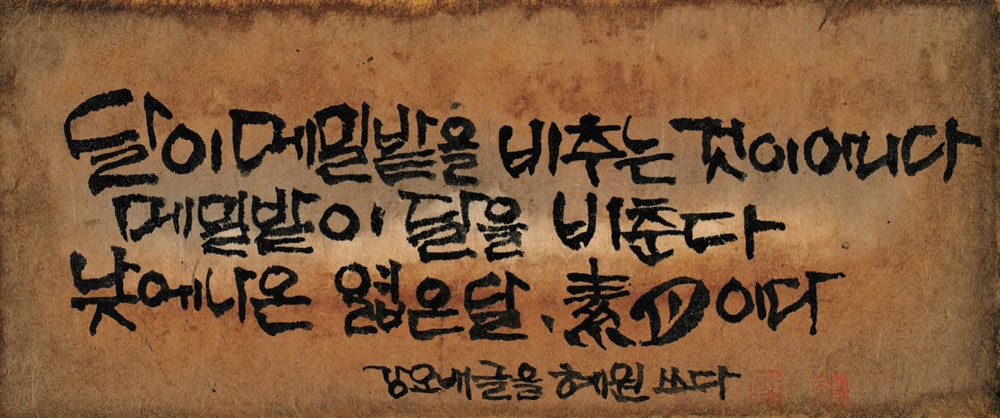 달이 메밀밭을 비추는 것이 아니다
메밀밭이 달을 비춘다
낮에 나온 엷은 달, 素月이다
강오배 글을 혜원 쓰다